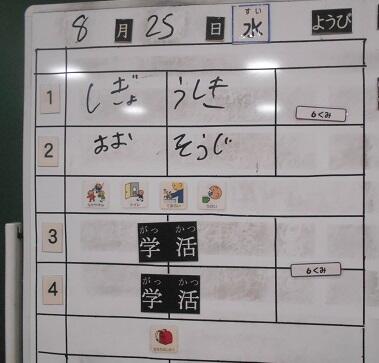 すい
8 月 25 日 水 ようび
1 しぎょうしき 6くみ
2 おおそうじ
がっ かつ
3 学活
6くみ
がっ かつ
4 学活